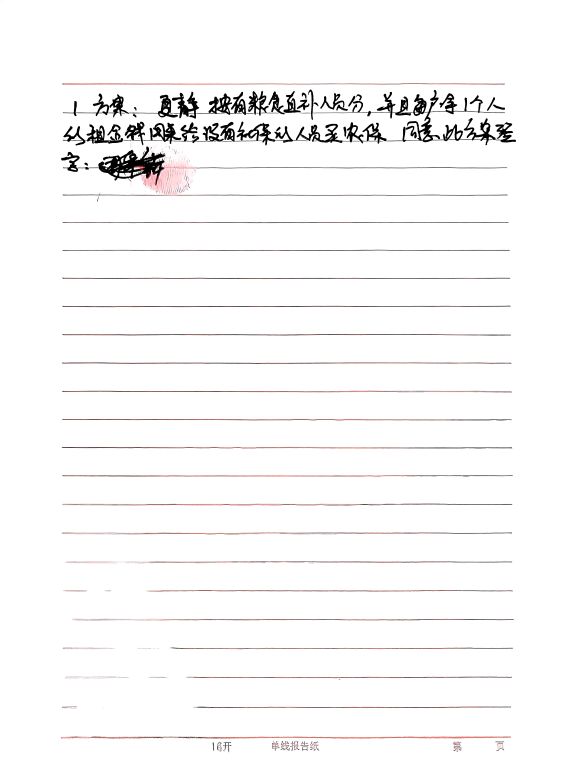 1 方案：夏静 按有粮食直补人员分，并且每户拿1个人
的租金钱回来给没有社保的人员买农保 同意此方案签
字：
16开 单线报告纸 第 页